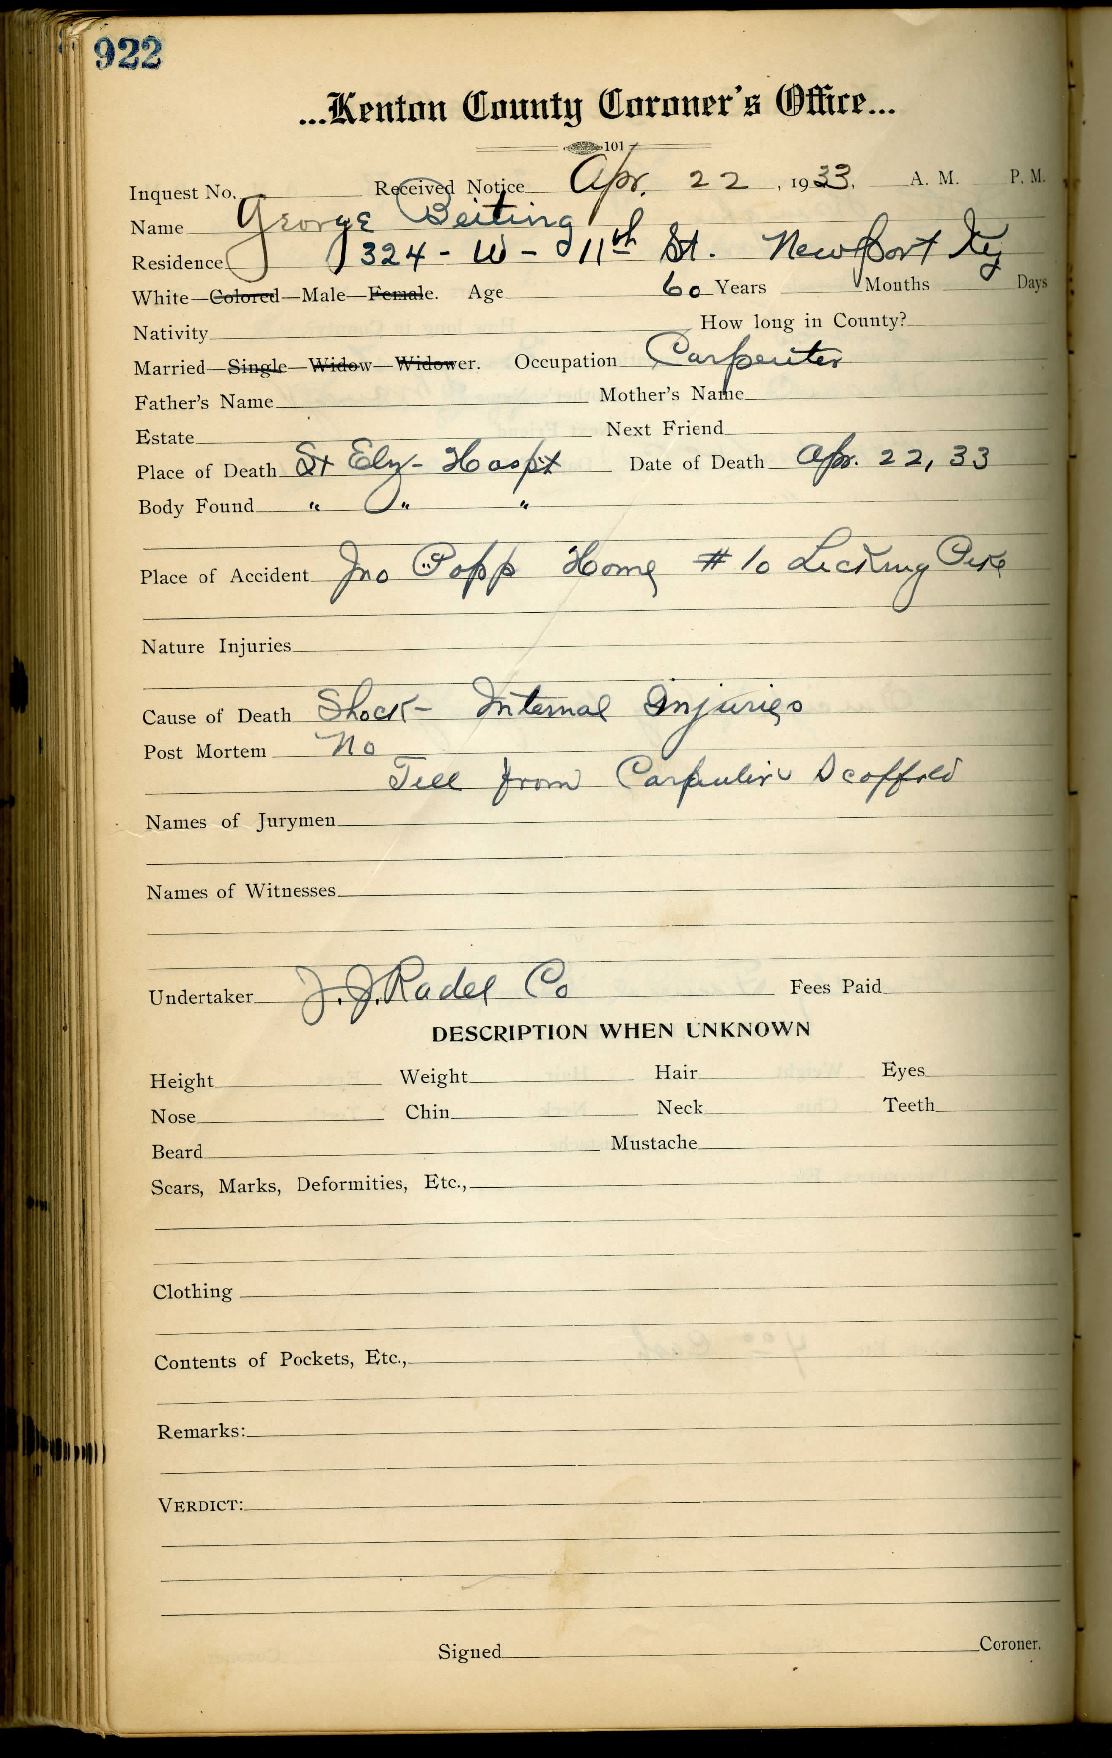 922
...Kenton County Coroner's Office...
101
Inquest No. Received Notice Apr. 22, 1933. A. M. P. M.
Name George Beiting
Residence 324 - W - 11th St. Newport Ky
White—Colored—Male—Female. Age 60 Years Months Days
Nativity How long in County?
Married—Single—Widow—Widower. Occupation Carpenter
Father's Name Mother's Name
Estate Next Friend
Place of Death St Eliz- Hospt Date of Death Apr. 22, 33
Body Found " " "
Place of Accident Jno Popp Home # 10 Licking Pike
Nature Injuries
Cause of Death Shock- Internal Injuries
Post Mortem No
Fell from Carpenter Scaffold
Names of Jurymen
Names of Witnesses
Undertaker J.J. Radel Co Fees Paid
DESCRIPTION WHEN UNKNOWN
Height Weight Hair Eyes
Nose Chin Neck Teeth
Beard Mustache
Scars, Marks, Deformities, Etc.,
Clothing
Contents of Pockets, Etc.,
Remarks:
VERDICT:
Signed Coroner.